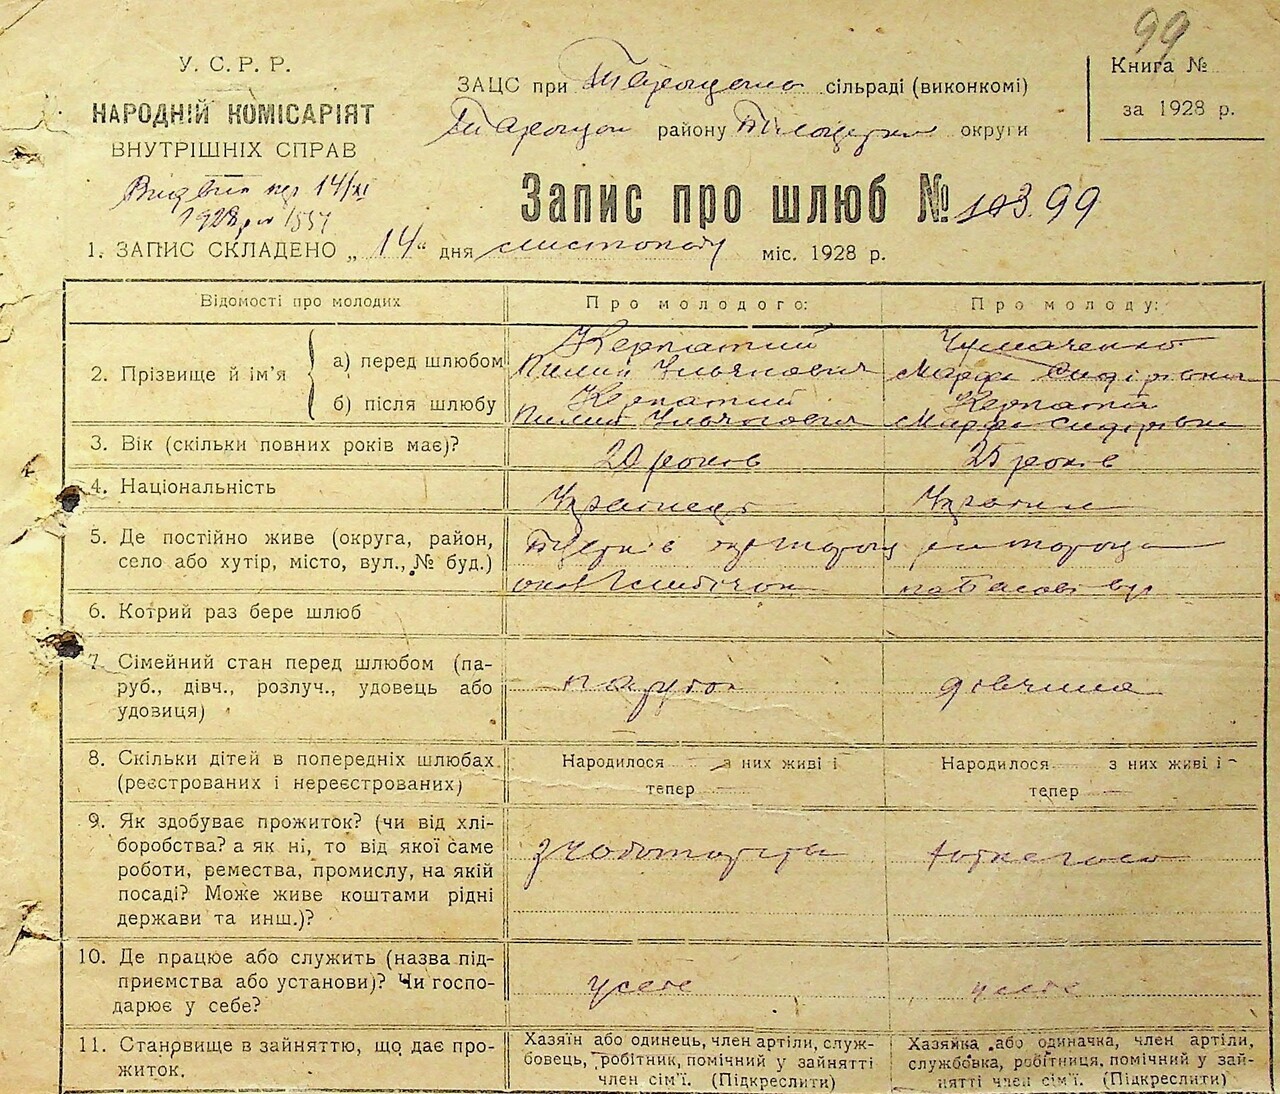 99
У. С. Р. Р.
НАРОДНІЙ КОМІСАРІЯТ
ВНУТРІШНІХ СПРАВ
14/XI
1928 р.
ЗАЦС при сільраді (виконкомі)
району округи
Книга №
за 1928 р.
Запис про шлюб № 103. 99
1. ЗАПИС СКЛАДЕНО „ 14 “ дня листопаду міс. 1928 р.
Відомості про молодих
Про молодого:
Про молоду:
2. Прізвище й ім'я
а) перед шлюбом
б) після шлюбу
Керпатий
Пилип Ульянович
Керпатий
Пилип Ульянович
Чумаченко
Марфа Сидорівна
Керпата
Марфа Сидорівна
3. Вік (скільки повних років має)?
20 років
25 років
4. Національність
Українець
Українка
5. Де постійно живе (округа, район,
село або хутір, місто, вул., № буд.)
6. Котрий раз бере шлюб
7. Сімейний стан перед шлюбом (па-
руб., дівч., розлуч., удовець або
удовиця)
парубок
дівчина
8. Скільки дітей в попередніх шлюбах
(реєстрованих і нереєстрованих)
Народилося з них живі і
тепер
Народилося з них живі і
тепер
9. Як здобуває прожиток? (чи від хлі-
боробства? а як ні, то від якої саме
роботи, ремества, промислу, на якій
посаді? Може живе коштами рідні
держави та инш.)?
10. Де працює або служить (назва під-
приємства або установи)? Чи госпо-
дарює у себе?
у себе
у себе
11. Становище в зайняттю, що дає про-
житок.
Хазяїн або одинець, член артіли, служ-
бовець, робітник, помічний у зайнятті
член сім'ї. (Підкреслити)
Хазяйка або одиначка, член артіли,
службовка, робітниця, помічний у зай-
нятті член сім'ї. (Підкреслити)